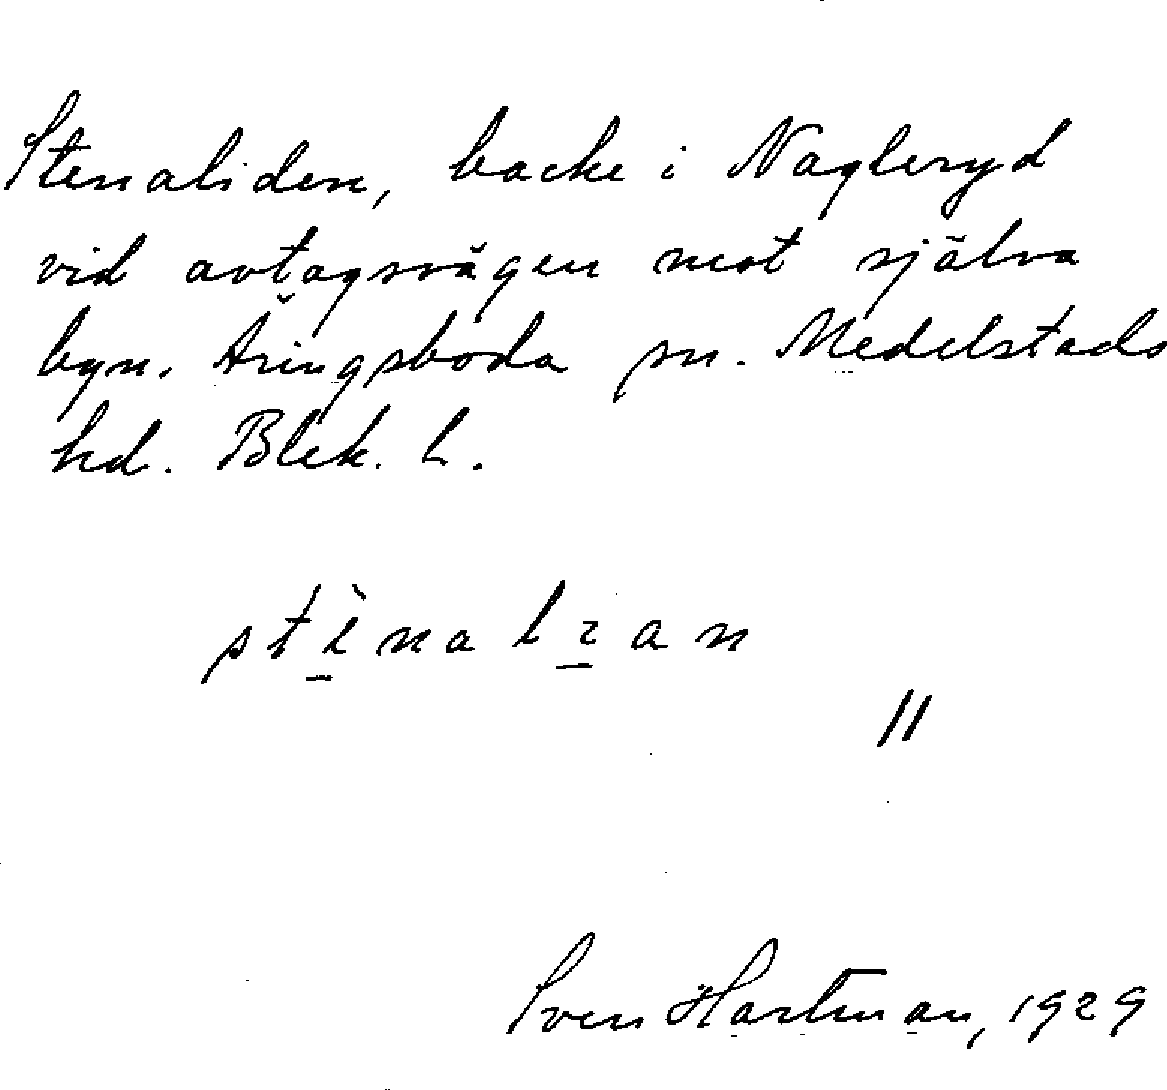 Stenaliden, backe i Nagleryd
vid avtagsvägen mot själva
byn. Äringsboda sn. Medelstads
hd. Blek. l.
Sven Hartman, 1929